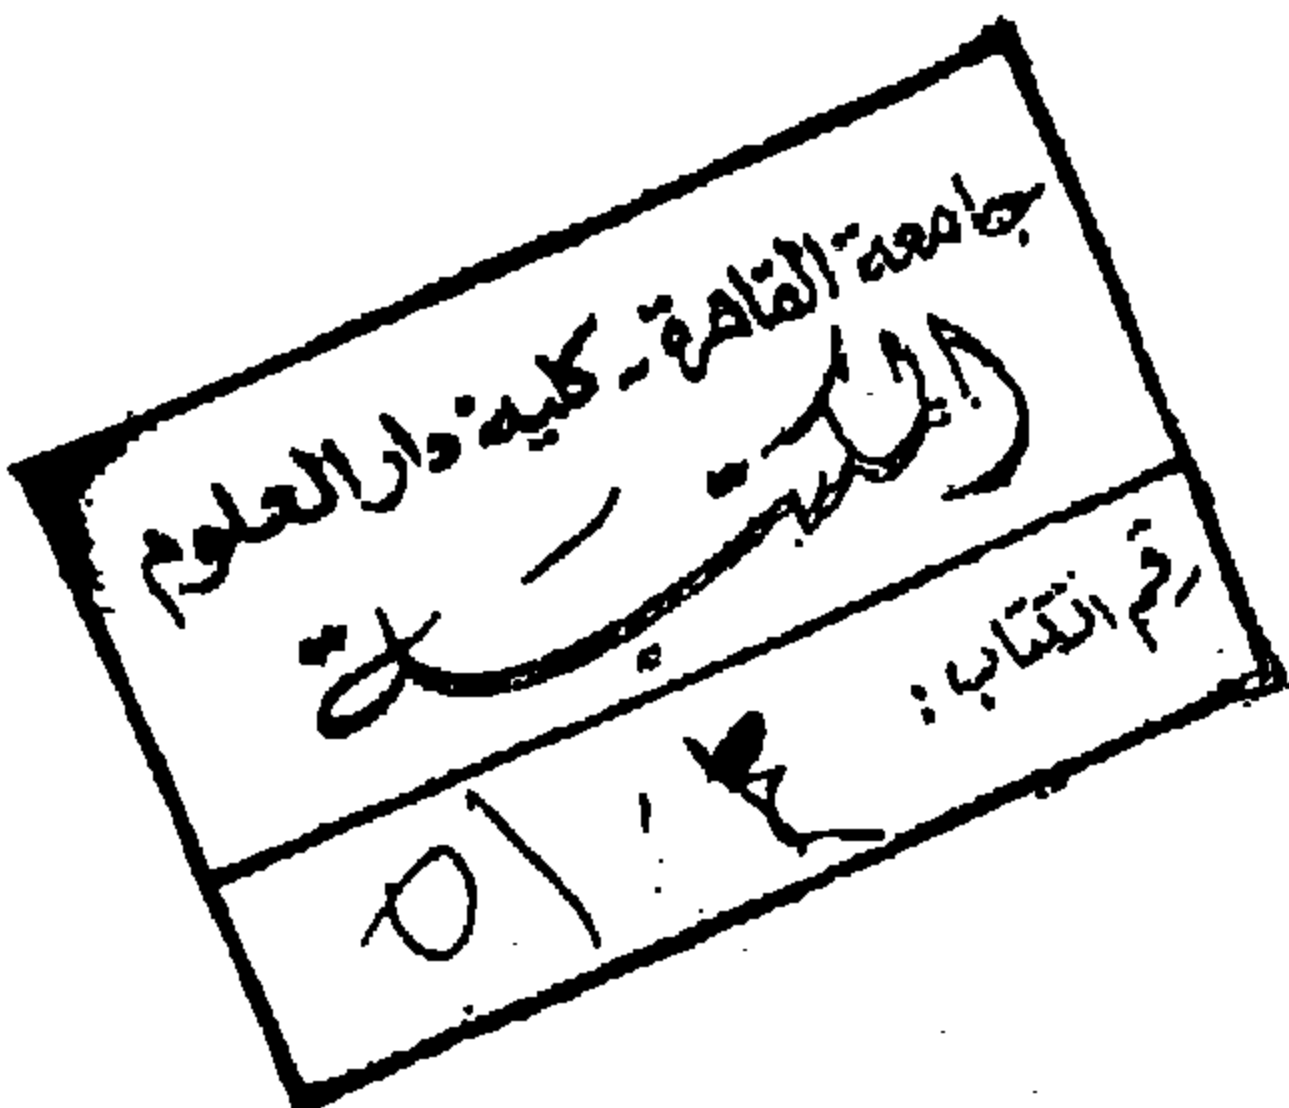 جامعة القاهرة - كلية دار العلوم
المكتبة
رقم الكتاب :